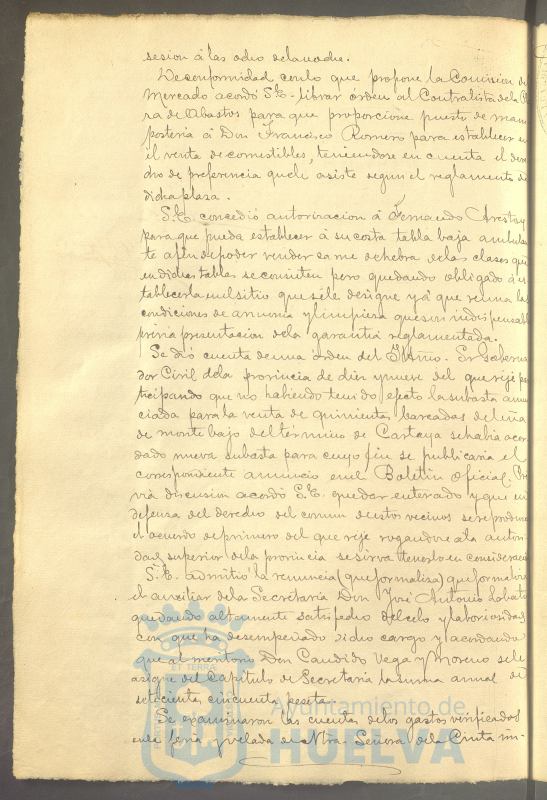 sesion á las ocho de la noche.
De conformidad con lo que propone la Comision de
Mercado acordó S.E. librar órden al Contratista de la Pla
za de Abastos para que proporcione puesto de mam
posteria á Don Francisco Romero para establecer en
él venta de comestibles, teniendose en cuenta el dere
cho de preferencia que le asiste segun el reglamento de
dicha plaza.
S.E. concedió autorizacion á Fernando
para que pueda establecer á su costa tabla baja ambulan
te afin de poder vender carne de hebra de las clases que
en dichas tablas se consienten pero quedando obligado á es
tablecerla en el sitio que se le designe y á que reuna las
condiciones de armonia y limpieza que son indispensables
prévia presentacion de la garantia reglamentada.
Se dió cuenta de una órden del Iltmo. Sr. Goberna
dor Civil de la provincia de diez y nueve del que rije par
ticipando que no habiendo tenido efecto la subasta anun
ciada para la venta de quinientas barcadas de leña
de monte bajo del término de Cartaya se habia acor
dado nueva subasta para cuyo fin se publicaria el
correspondiente anuncio en el Boletin Oficial. Pré
via discusion acordó S.E. quedar enterado y que en
defensa del derecho del comun de estos vecinos se reproduzca
el acuerdo de primero del que rije rogandose a la autori
dad superior de la provincia se sirva tenerlo en consideracion
S.E. admitió la renuncia (que formaliza) que formaliza
el auxiliar de la Secretaria Don José Antonio Lobato
quedando altamente satisfecho del celo y laboriosidad
con que ha desempeñado dicho cargo y acordando
que al meritorio Don Candido Vega y Moreno se le
asigne del Capitulo de Secretaria la suma anual de
setecientas cincuenta pesetas.
Se examinaron las cuentas de los gastos verificados
en la feria y velada de Ntra. Señora de la Cinta im-
ET TERRÆ
Ayuntamiento de
HUELVA